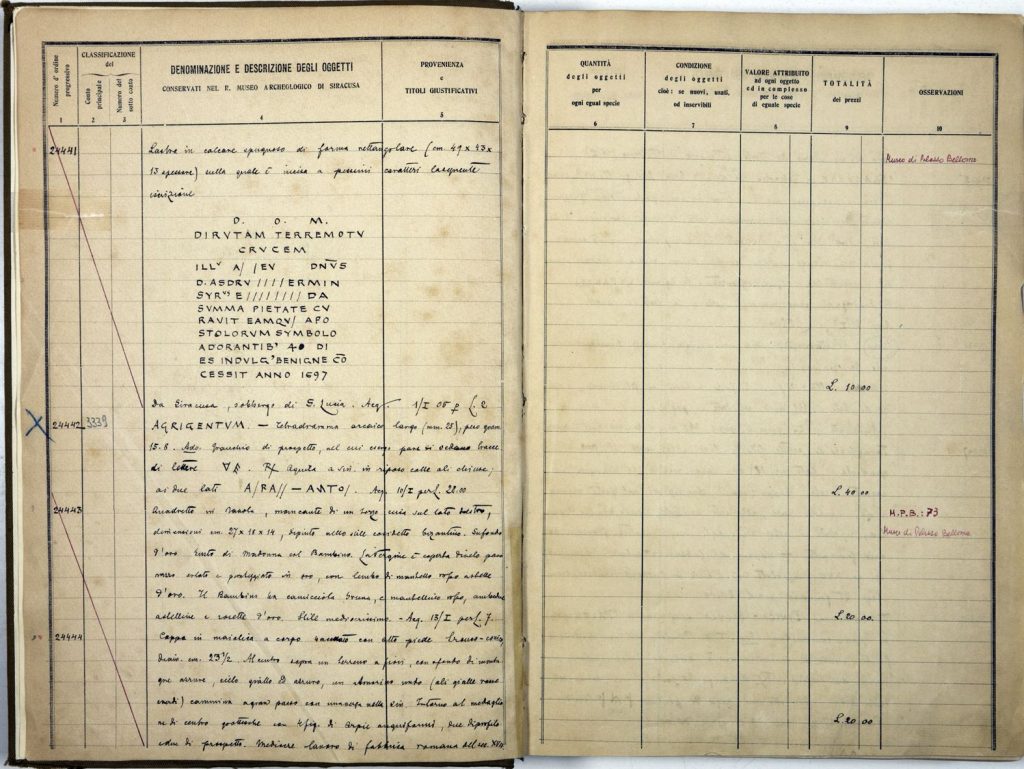 Numero d'ordine progressivo
CLASSIFICAZIONE del
Conto principale
Numero del sotto conto
DENOMINAZIONE E DESCRIZIONE DEGLI OGGETTI
CONSERVATI NEL R. MUSEO ARCHEOLOGICO DI SIRACUSA
PROVENIENZA
e
TITOLI GIUSTIFICATIVI
1 2 3 4 5
24441 Lastra in calcare spugnoso di forma rettangolare (cm. 49 x 43 x
13 spessore) sulla quale è incisa a pessimi caratteri la seguente
iscrizione
D. O. M.
DIRVTAM TERREMOTV
CRVCEM
ILLV A/ /EV DN̄VS
D. ASDRV ////ERMIN
SYRVS E //////// DA
SVMMA PIETATE CV
RAVIT EAMQV/ APO
STOLORVM SYMBOLO
ADORANTIB' 40 DI
ES INDVLG' BENIGNE CŌ
CESSIT ANNO 1697
Da Siracusa, sobborgo di S. Lucia. Acq. 1/I 05 p L. 2
24442 3339 AGRIGENTVM. — Tetradramma arcaico largo (mm. 25), peso gram
15.8. Ado. Granchio di prospetto, nel cui esergo pare si vedano tracce
di lettere. Aquila a sin. in riposo colle ali chiuse;
ai due lati A/RA// — ANTO/. Acq. 10/I per L. 28.00
24443 Quadretto in tavola, mancante di un pezzo sul lato destro,
dimensioni cm. 27 x 18 x 14, dipinto nello stile cosidetto bizantino. Sufondo
d'oro. Busto di Madonna col Bambino. La Vergine è coperta di velo pao
nazzo orlato e punteggiato in oro, con lembo di mantello rosso a stelle
d'oro. Il Bambino ha camicciola bruna, e mantellino rosso, ambedue
a stelline e rosette d'oro. Stile mediocrissimo. — Acq. 13/I per L. 7.
24444 Coppa in maiolica a corpo con alto piede tronco-conico,
diam. cm. 23½. Al centro sopra un terreno a fiori, con sfondo di monta
gne azzurre, cielo giallo ed azzurro, un Amorino nudo (ali gialle rosse
verdi) cammina a gran passo con una verga nella sin. Intorno al medaglio
ne di centro grottesche con 4 fig. di Arpie anguiformi, due di profilo
e due di prospetto. Mediocre lavoro di fabbrica romana del sec. XVII
QUANTITÀ
degli oggetti
per
ogni egual specie
CONDIZIONE
degli oggetti
cioè: se nuovi, usati,
od inservibili
VALORE ATTRIBUITO
ad ogni oggetto
ed in complesso
per le cose
di eguale specie
TOTALITÀ
dei prezzi
OSSERVAZIONI
6 7 8 9 10
Museo di Palazzo Bellomo
L. 10.00
L. 40.00
M.P.B.: 73
Museo di Palazzo Bellomo
L. 20.00.
L. 20.00